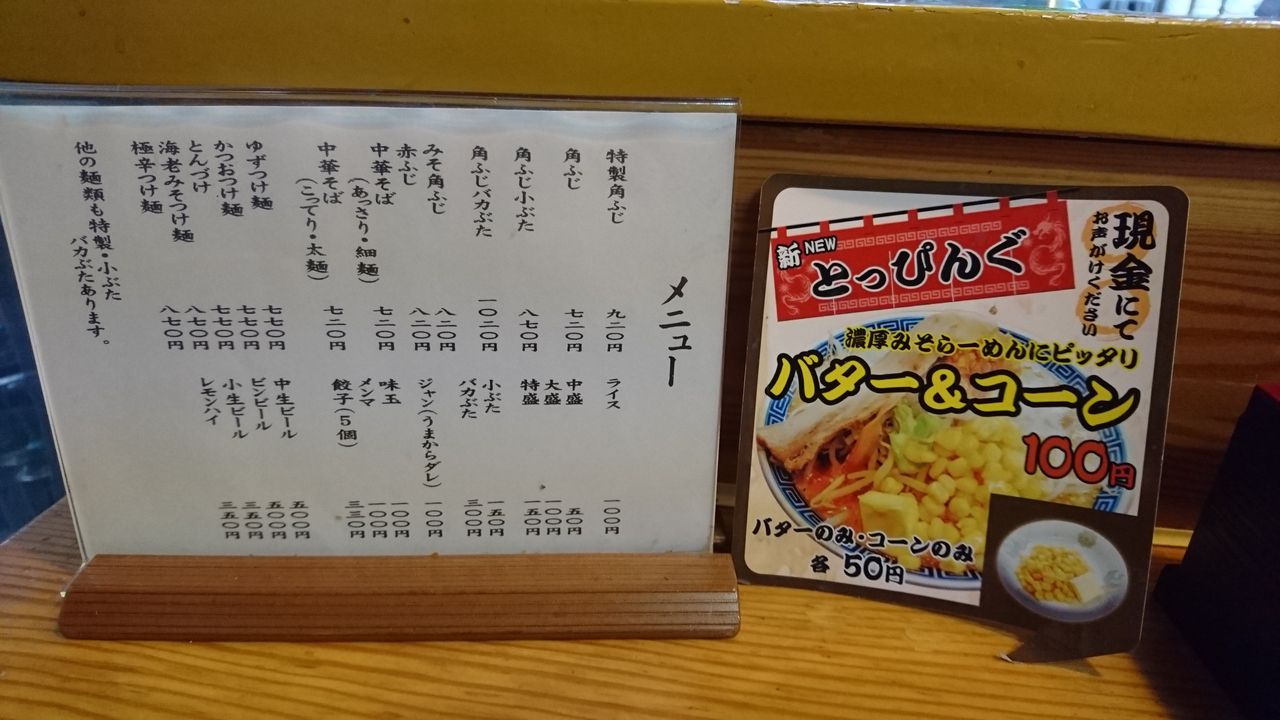 メニュー
特製角ふじ 九二〇円
角ふじ 七二〇円
角ふじ小ぶた 八七〇円
角ふじバカぶた 一〇二〇円
みそ角ふじ 八二〇円
赤ふじ 八二〇円
中華そば
(あっさり・細麺) 七二〇円
中華そば
(こってり・太麺) 七二〇円
ゆずつけ麺 七七〇円
かつおつけ麺 七七〇円
とんづけ 七七〇円
海老みそつけ麺 八七〇円
極辛つけ麺 八七〇円
他の麺類も特製・小ぶた
バカぶたあります。
ライス 一〇〇円
中盛 五〇円
大盛 一〇〇円
特盛 一五〇円
小ぶた 一五〇円
バカぶた 三〇〇円
ジャン(うまからダレ) 一〇〇円
味玉 一〇〇円
メンマ 一〇〇円
餃子(5個) 三三〇円
中生ビール 五〇〇円
ビンビール 五〇〇円
小生ビール 三五〇円
レモンハイ 三五〇円
現金にて
お声がけください
新NEW
とっぴんぐ
濃厚みそらーめんにピッタリ
バター&コーン
100円
バターのみ・コーンのみ
各50円